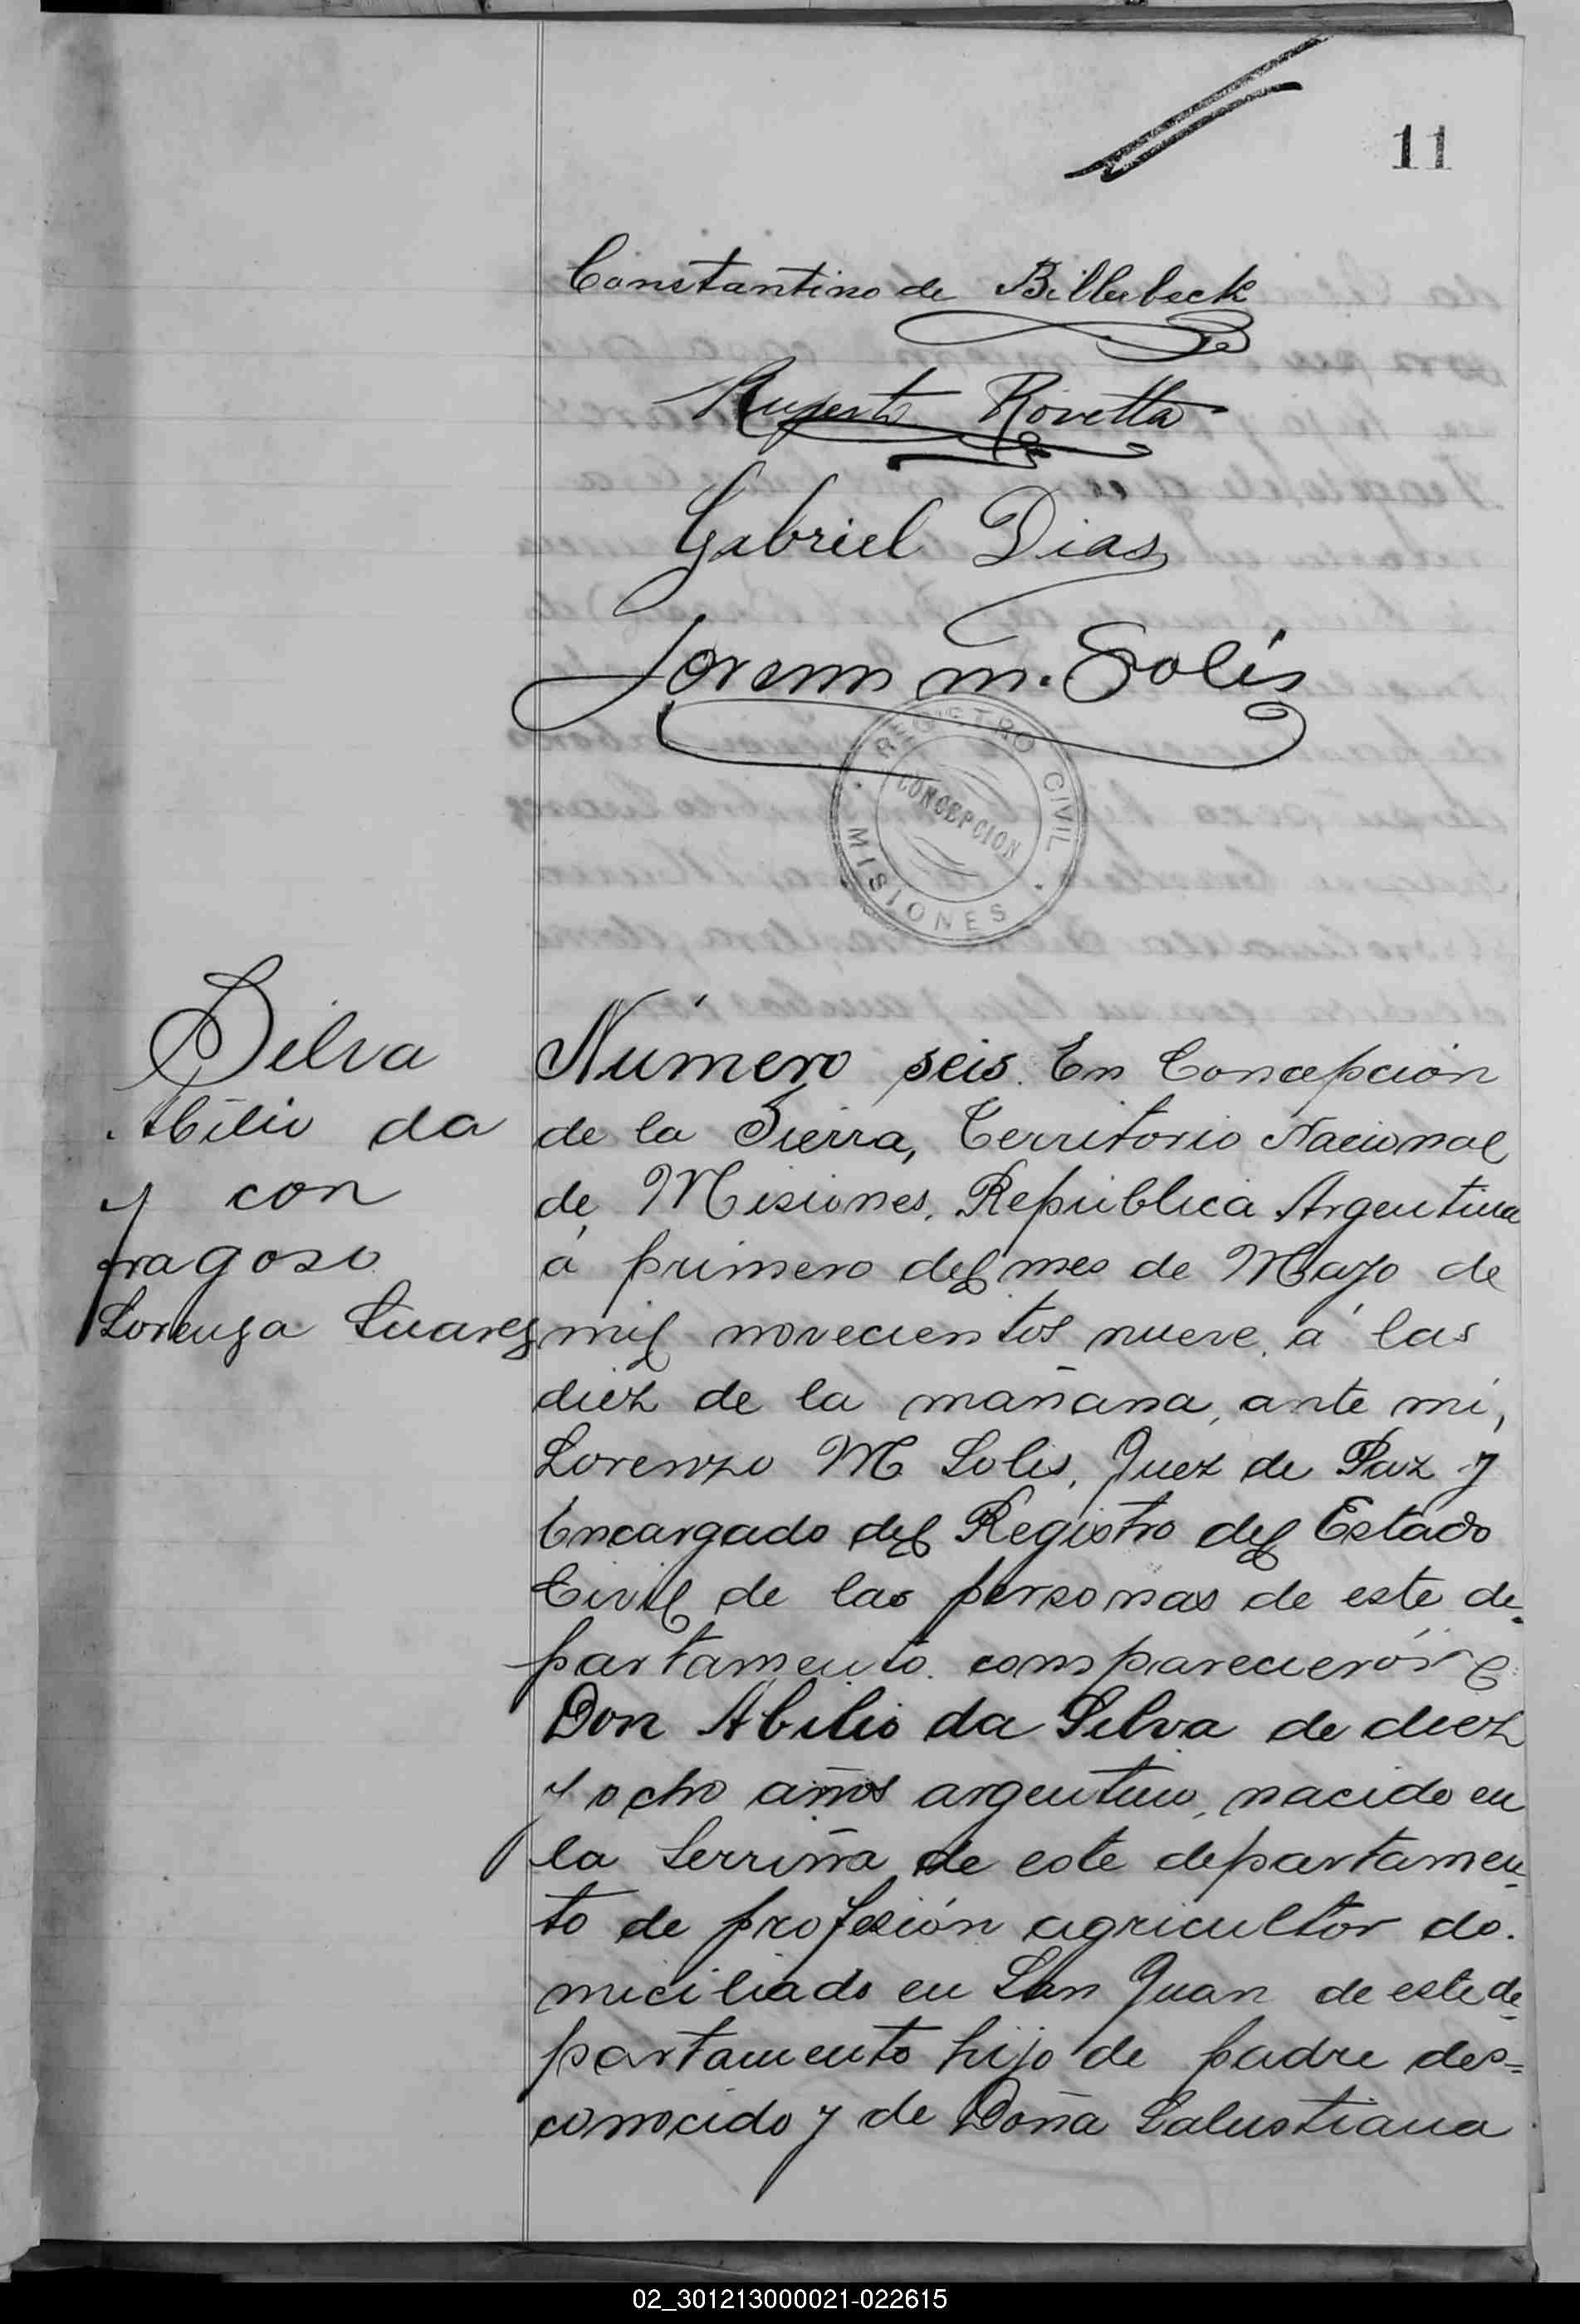 11
Constantino de Billerbeck
Ruperto Rovetta
Gabriel Dias
Lorenzo M. Solís
REGISTRO CIVIL
CONCEPCION
MISIONES
Silva
Abilio da
y con
fragoso
Lorenza Suares
Número seis. En Concepción
de la Sierra, Territorio Nacional
de Misiones, República Argentina
á primero del mes de Mayo de
mil novecientos nueve, á las
diez de la mañana, ante mí,
Lorenzo M Solis, Juez de Paz y
Encargado del Registro del Estado
Civil de las personas de este de-
partamento. comparecierón
Don Abilio da Silva de diez
y ocho años argentino, nacido en
la Serriña de este departamen-
to de profesión agricultor do-
miciliado en San Juan de este de-
partamento hijo de padre des=
conocido y de Doña Salustiana
02_301213000021-022615